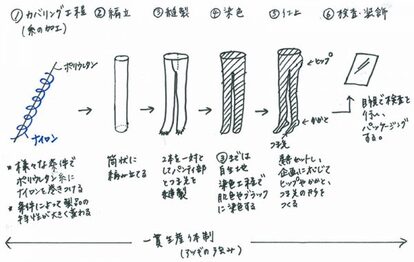 ① カバリング工程
(糸の加工)
ポリウレタン
ナイロン
* 様々な条件で
ポリウレタン糸に
ナイロンを巻きつける
* 条件によって製品の
特性が大きく変わる
② 編立
筒状に
編み立てる
③ 縫製
2本を一対と
してパンティ部
とつま先を
縫製
④ 染色
③までは
白生地
染色工程で
肌色やブラックに
染色する
⑤ 仕上
ヒップ
かかと
つま先
熱セットし、
企画に応じて
ヒップやかかと、
つま先の形を
つくる
⑥ 検査・装飾
目視で検査を
行い、
パッケージング
する。
一貫生産体制
(アツギの強み)